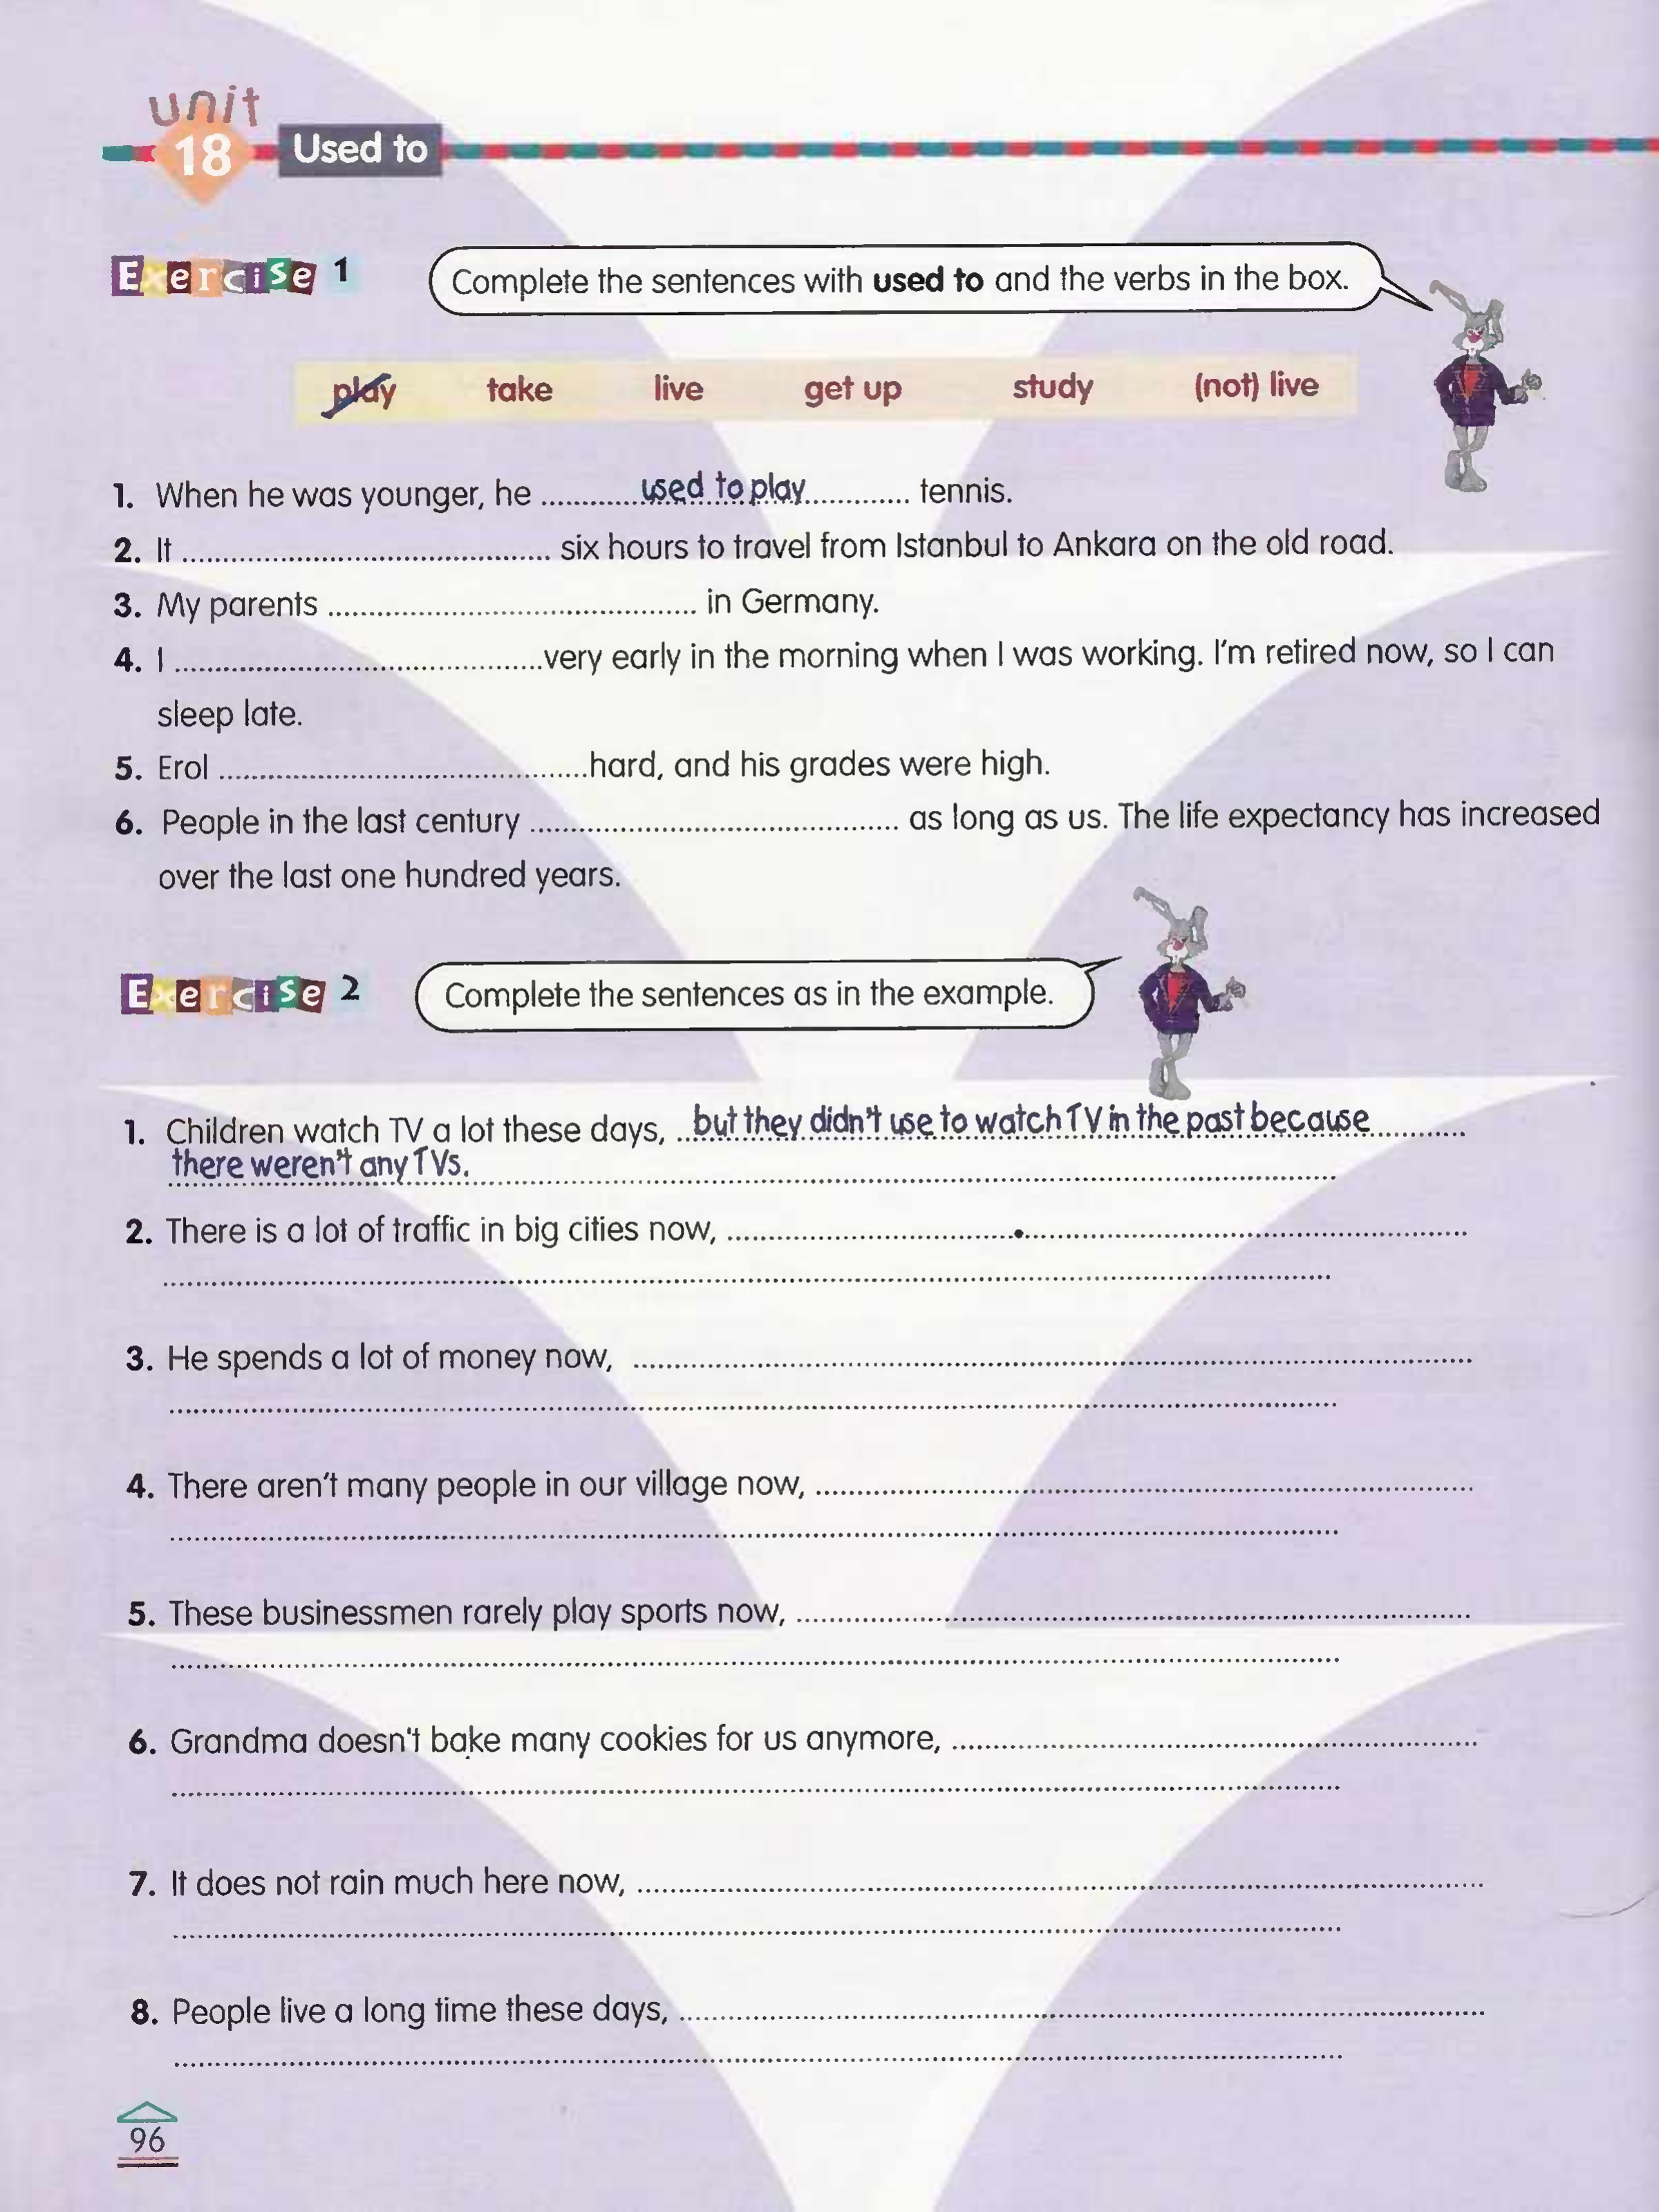 unit
18 Used to
Exercise 1
Complete the sentences with used to and the verbs in the box.
play take live get up study (not) live
1. When he was younger, he ............used to play............ tennis.
2. It ............................................ six hours to travel from Istanbul to Ankara on the old road.
3. My parents ............................................ in Germany.
4. I ............................................very early in the morning when I was working. I'm retired now, so I can
sleep late.
5. Erol ............................................hard, and his grades were high.
6. People in the last century ............................................ as long as us. The life expectancy has increased
over the last one hundred years.
Exercise 2
Complete the sentences as in the example.
1. Children watch TV a lot these days, ..but they didn't use to watch TV in the past because............
there weren't any TVs.............................................
2. There is a lot of traffic in big cities now, ............................................
3. He spends a lot of money now, ............................................
4. There aren't many people in our village now, ............................................
5. These businessmen rarely play sports now, ............................................
6. Grandma doesn't bake many cookies for us anymore, ............................................
7. It does not rain much here now, ............................................
8. People live a long time these days, ............................................
96